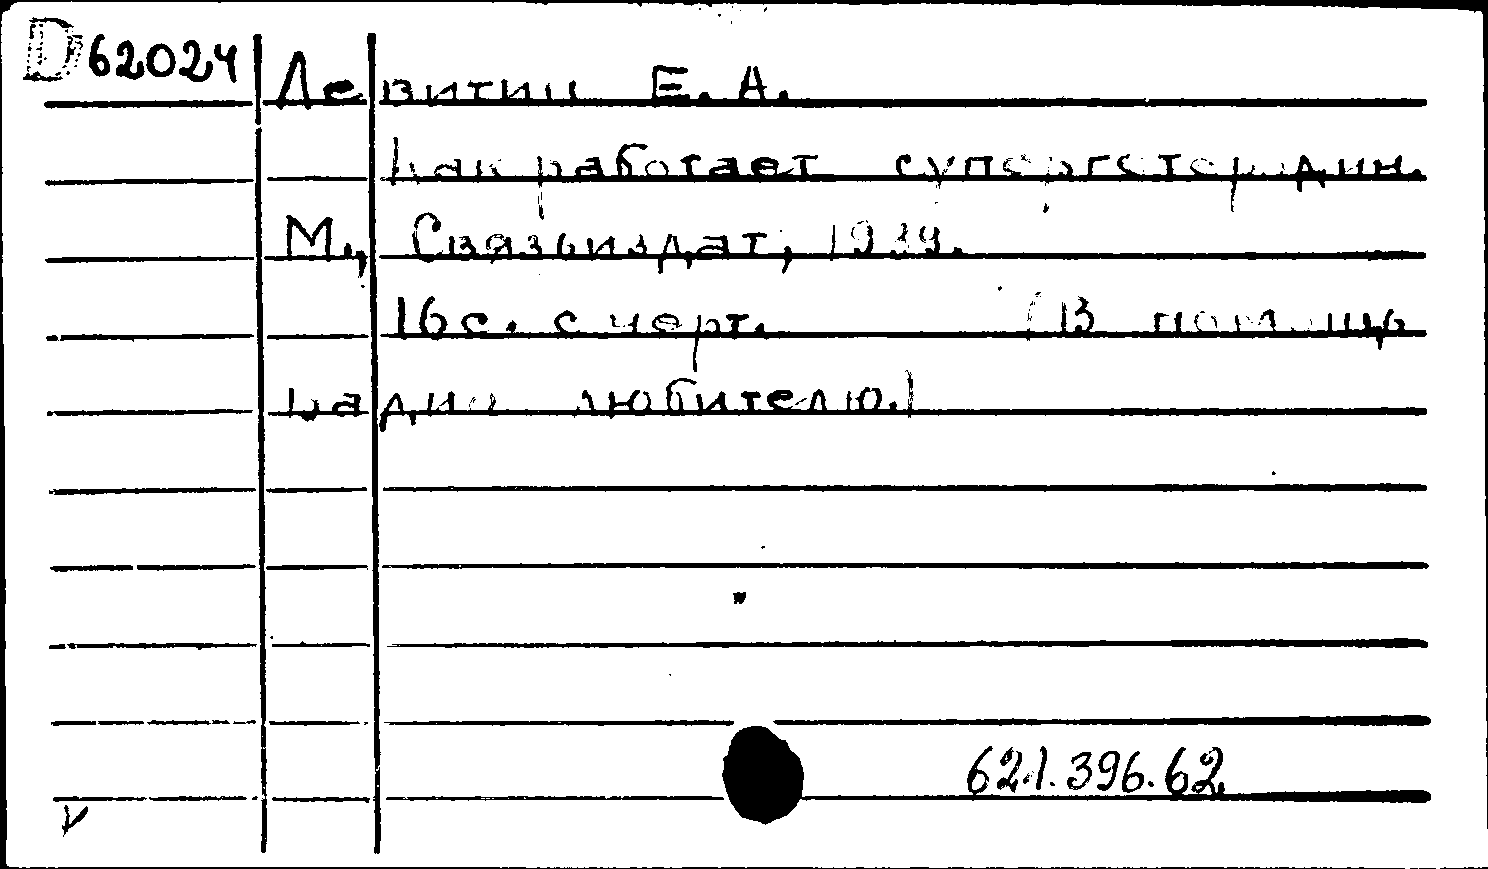 D62024
Левитин Е. А.
Как работает супергетеродин.
М., Связьиздат, 1939.
16 с. с черт. (В помощь
радиолюбителю.)
621.396.62